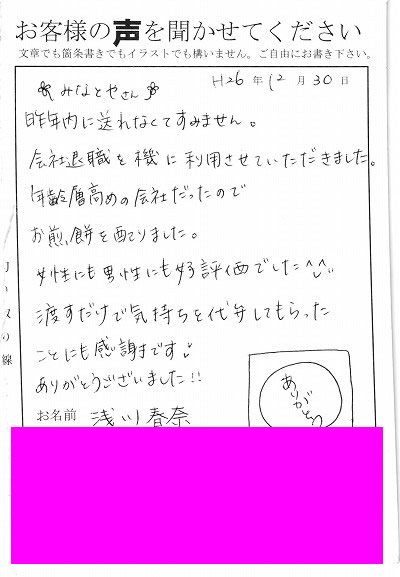 お客様の声を聞かせてください
文章でも箇条書きでもイラストでも構いません。ご自由にお書き下さい。
H26年12月30日
みなとやさん
昨年内に送れなくてすみません。
会社退職を機に利用させていただきました。
年齢層高めの会社だったので
お煎餅を配りました。
女性にも男性にも好評価でした^^
渡すだけで気持ちを代弁してもらった
ことにも感謝です♪
ありがとうございました!!
ありがとう
お名前 浅川春奈
の線